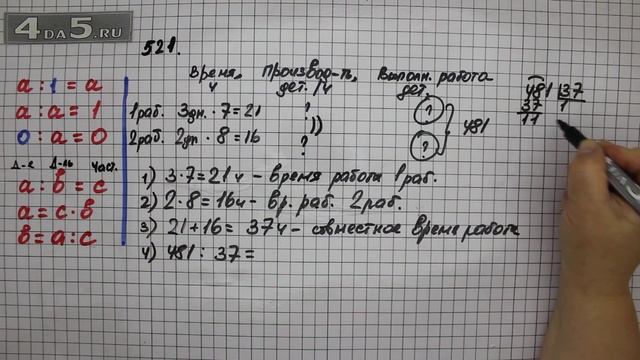 4DA5.RU
521.
a : 1 = a
a : a = 1
0 : a = 0
Д-е Д-ль Част.
a : в = c
a = c · в
в = a : c
Время, ч Производ-ть, дет./ч Выполн. работа дет.
1раб. 3дн. · 7 = 21 ? ?
2раб. 2дн · 8 = 16 ? ? } 481
1) 3·7=21ч – время работы 1 раб.
2) 2·8=16ч – вр. раб. 2раб.
3) 21+16= 37ч – совместное время работы
4) 481 : 37 =
481 | 37
37 1
11